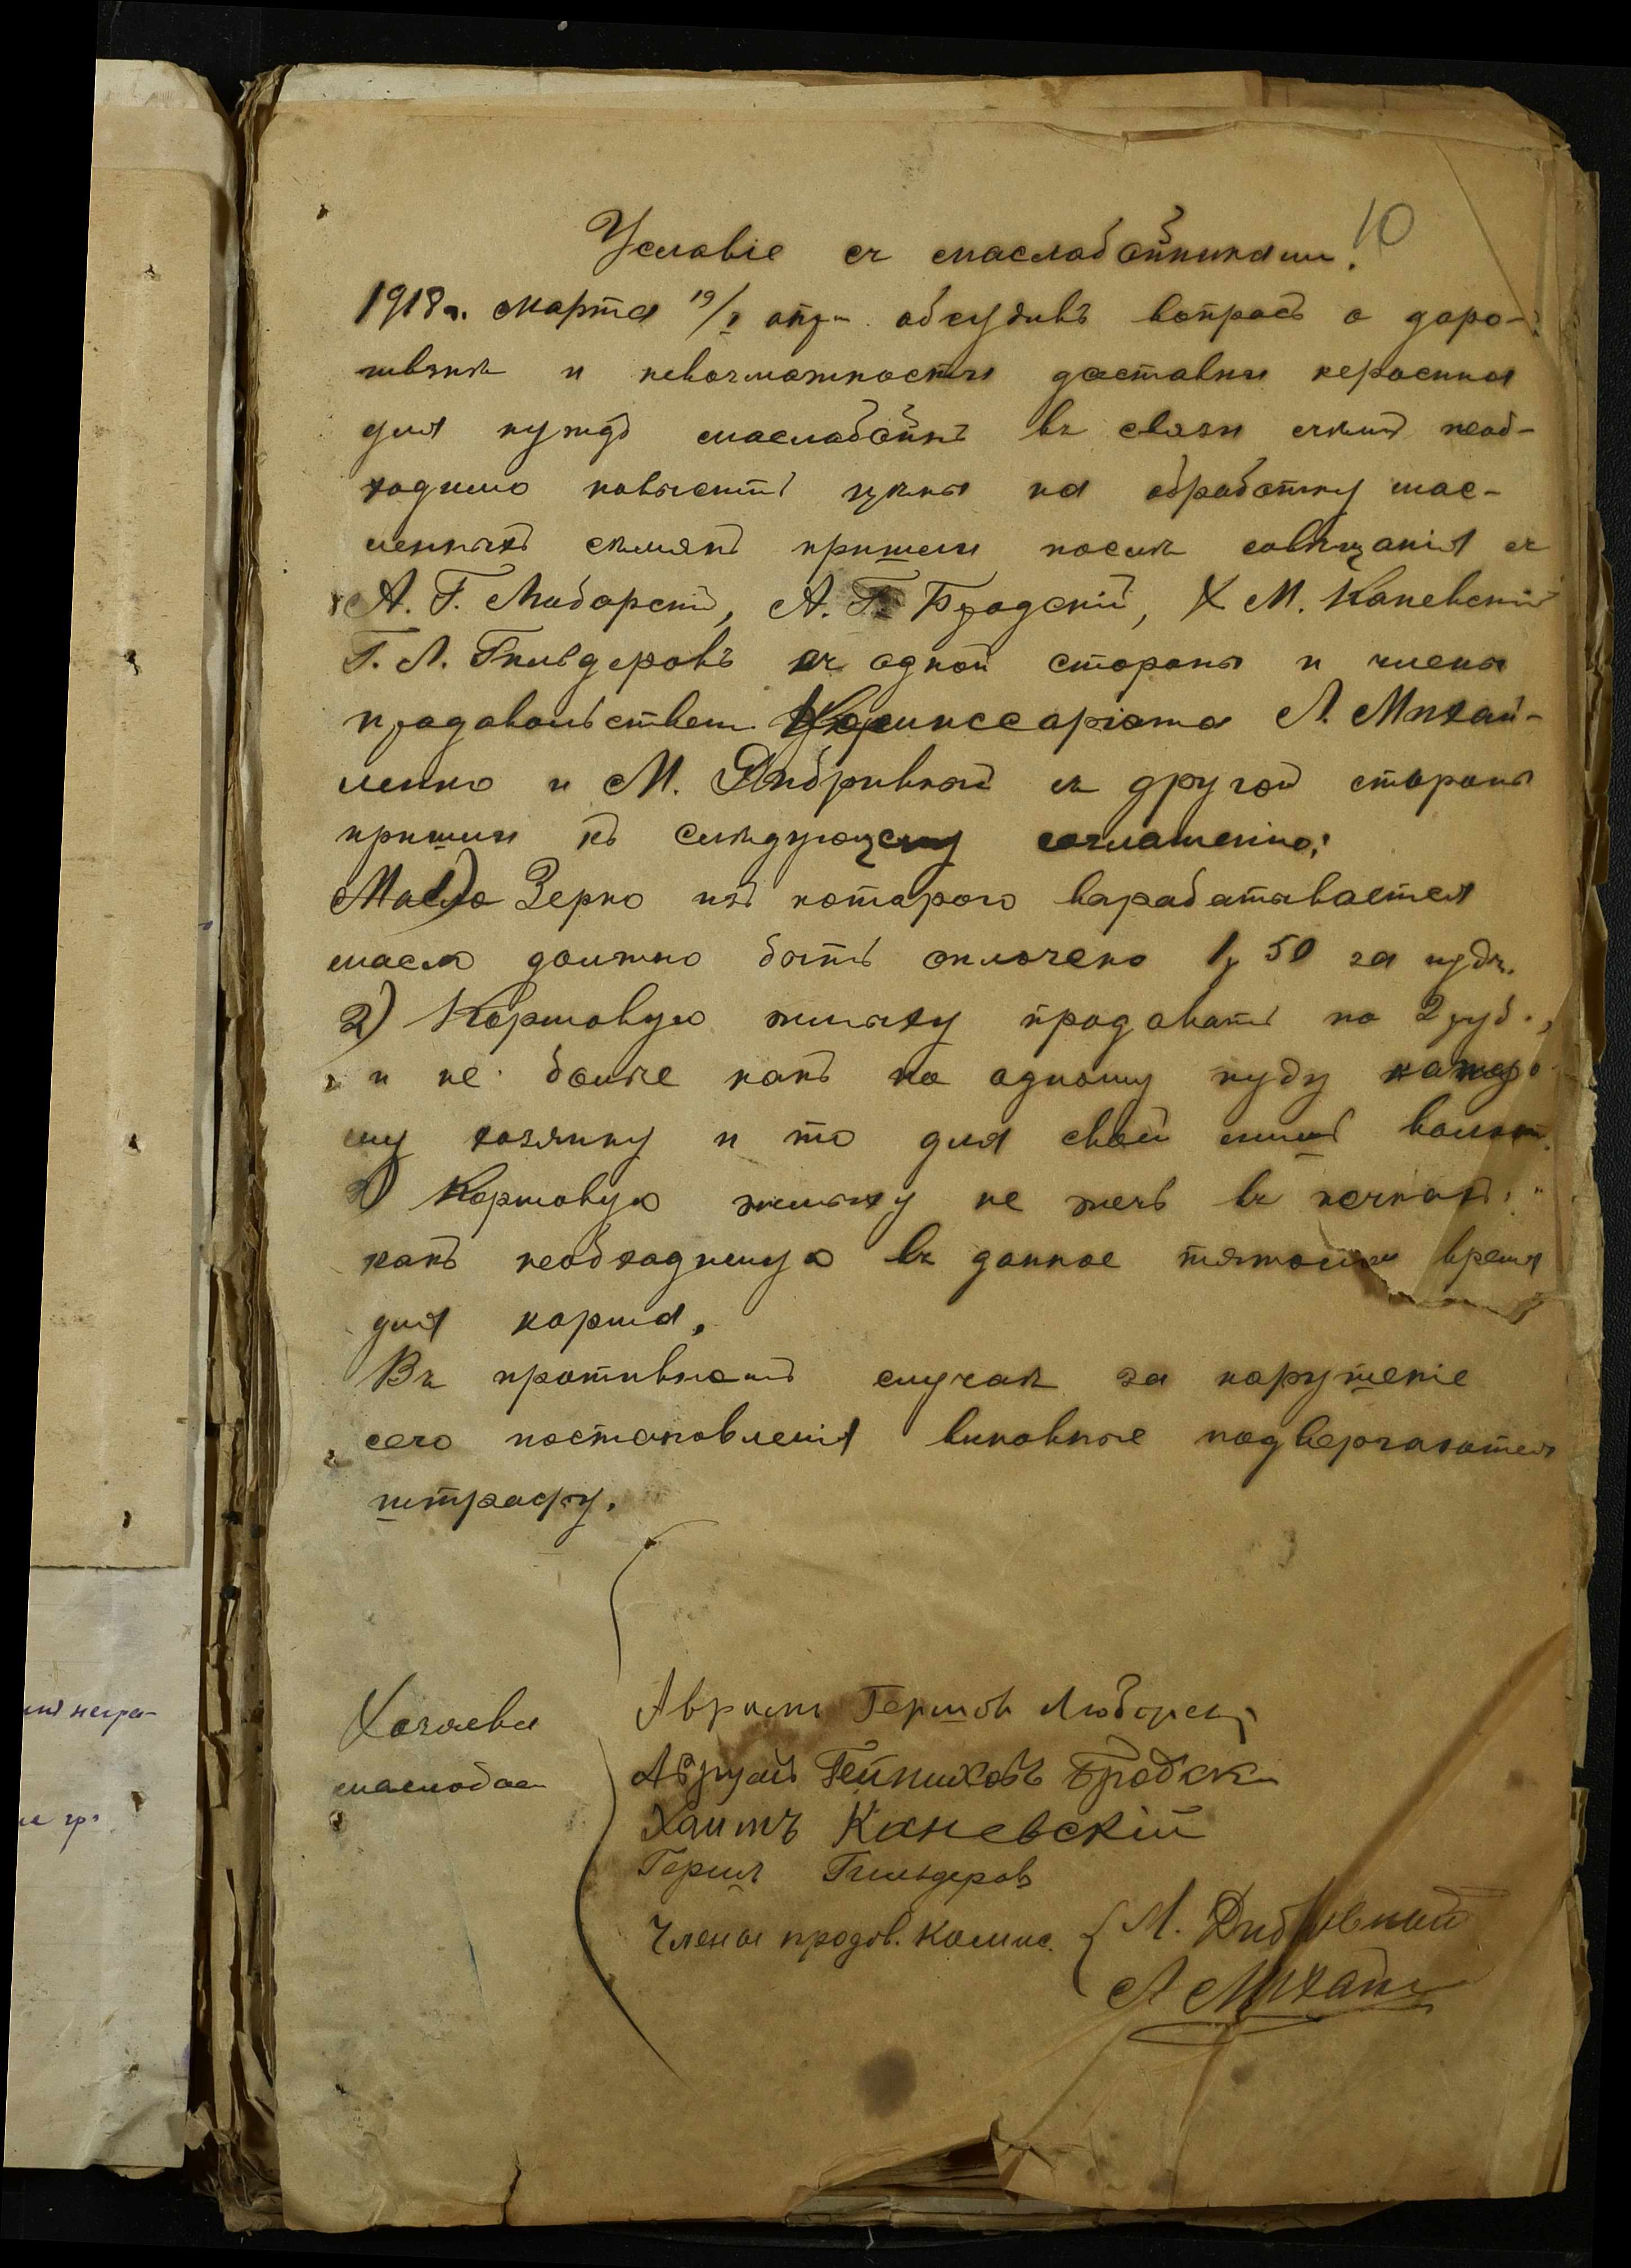 10
Условіе съ маслобойниками.
1918г. марта 19/ апр. обсудивъ вопросъ о доро-
говизнѣ и невозможности доставки керосина
для нуждъ маслобойнъ въ связи съ чѣмъ необ-
ходимо повысить цѣны на обработку мас-
личныхъ сѣмянъ пришли послѣ совѣщанія съ
А. Г. Либорскій, А. Г. Бродскій, Х М. Каневскій
Г. Л. Гильдеровъ съ одной стороны и члены
продовольствен. Коммиссаріата Л. Михай-
ленко и М. Дибривный съ другой стороны
пришли къ слѣдующему соглашенію:
1) Зерно изъ котораго вырабатывается
масло должно быть оплочено 1р 50 за пудъ.
2) Кормовую жмыху продовать по 2 руб.,
и не болѣе какъ по одному пуду каждо-
му хозяину и то для своей лишь волост.
3) Кормовую жмыху не жечь въ печкахъ,
какъ необходимую въ данное тяжолое время
для корма.
Въ противномъ случаѣ за нарушеніе
сего постановленія виновные подвергаются
штрафу.
Хозяева
маслобоен
Аврумъ Гершов Люборскі
Аврумъ Бродски
Хаимъ Каневскій
Герш Гильдеров
Члены продов. Комис.
М. Дибривный
Л Михайл